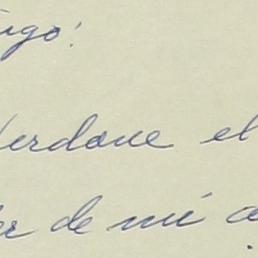 igo:
Perdone el
er de mi a